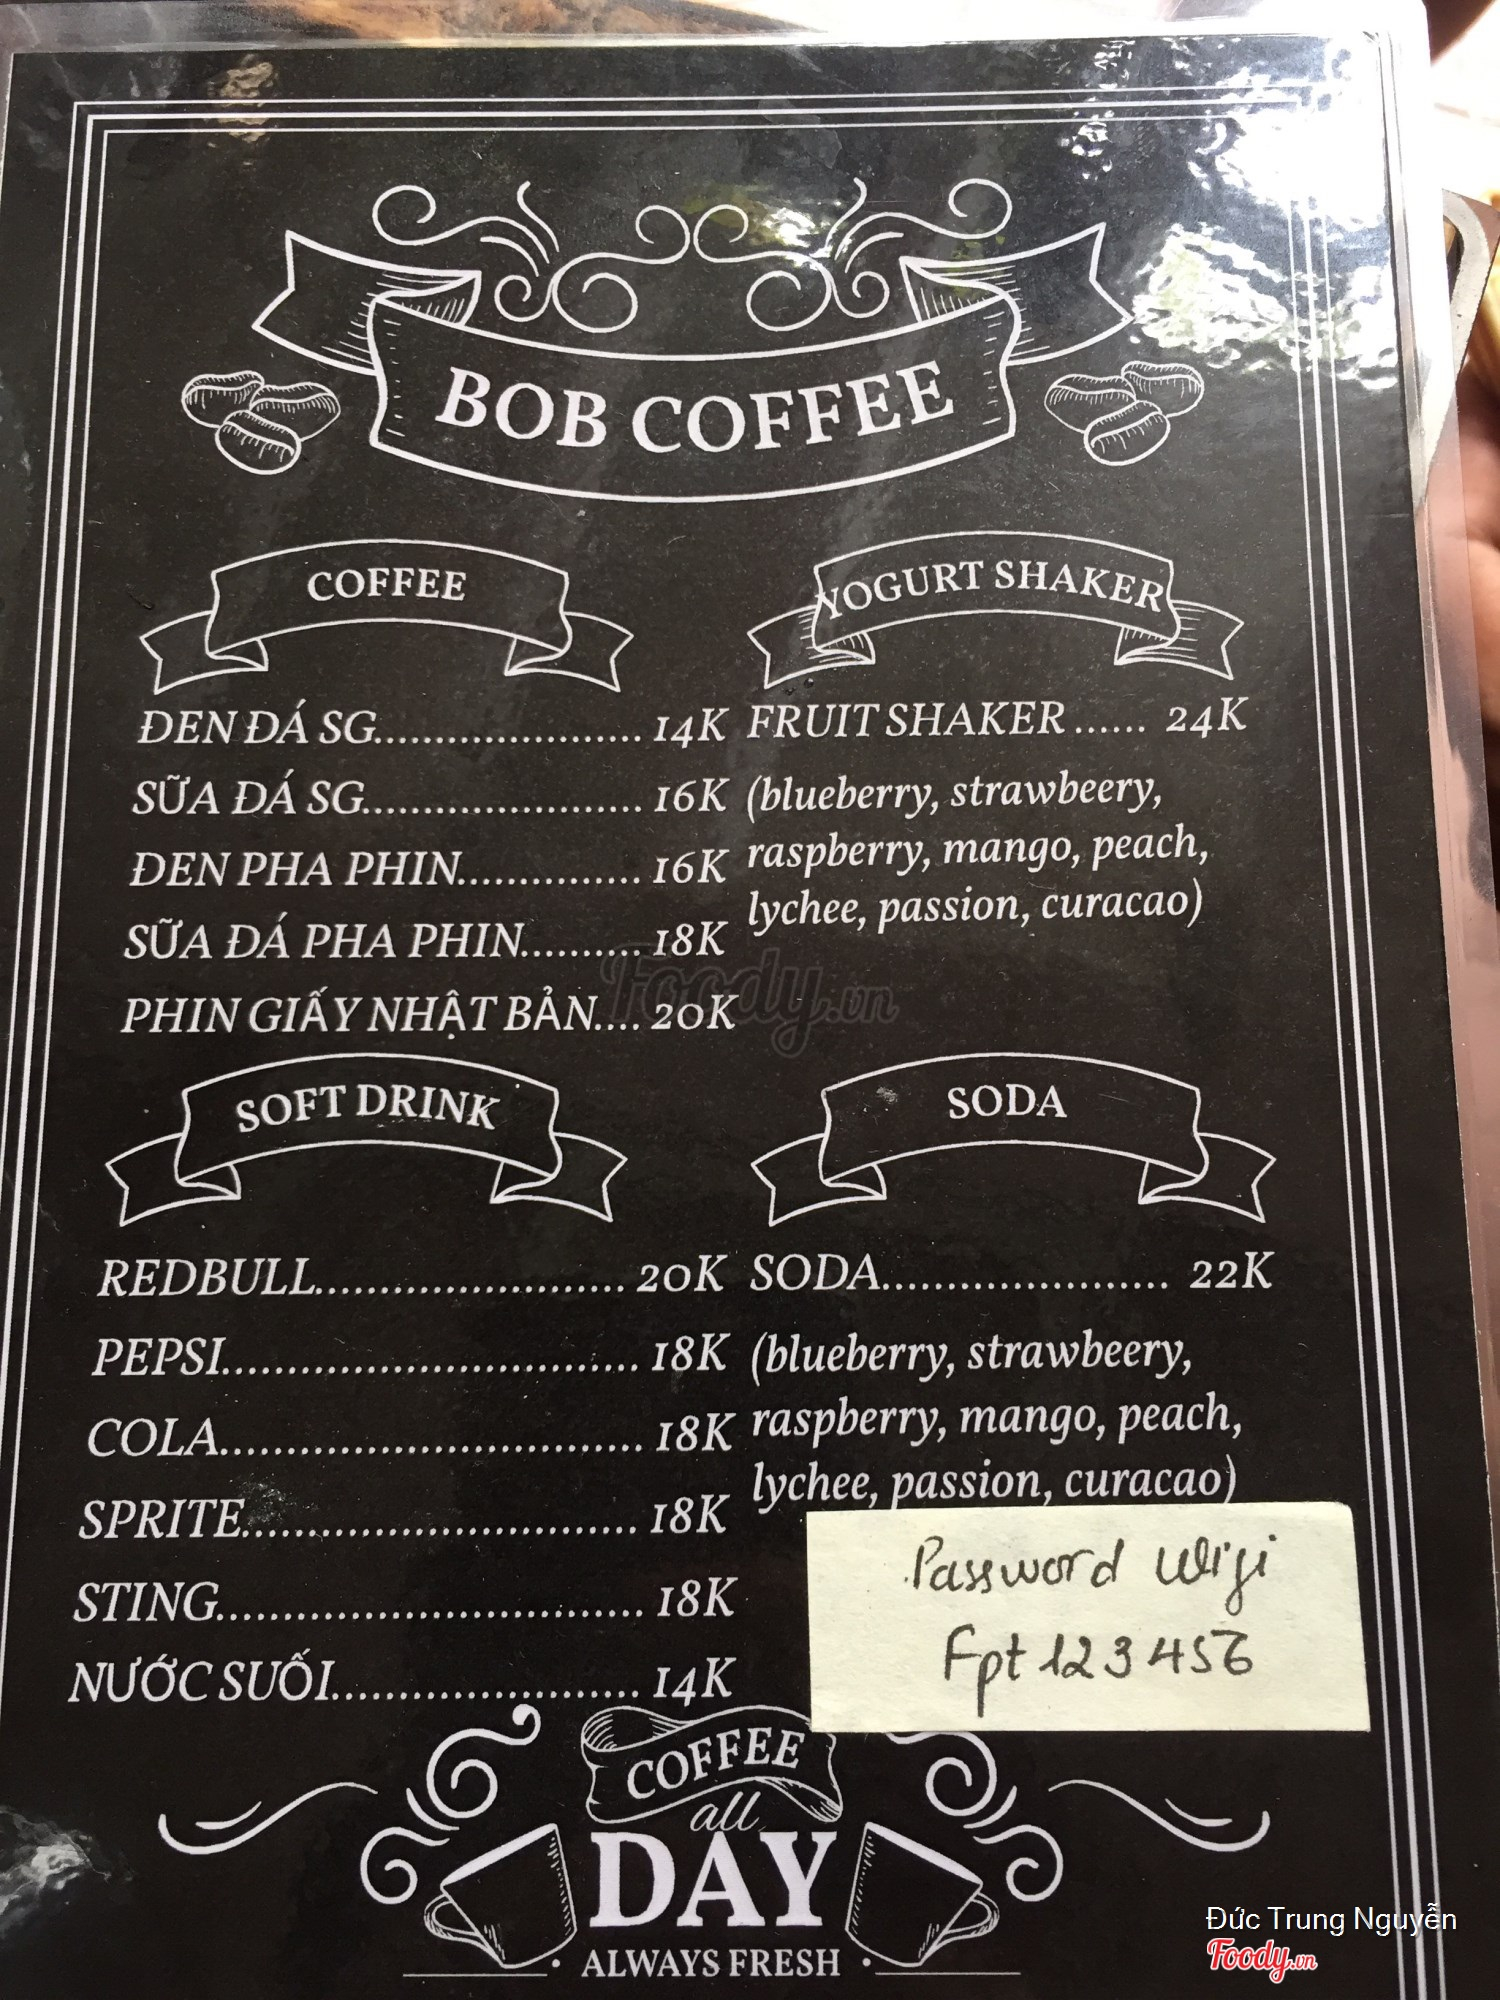 BOB COFFEE
COFFEE
ĐEN ĐÁ SG..................... 14K
SỮA ĐÁ SG...................... 16K
ĐEN PHA PHIN.............. 16K
SỮA ĐÁ PHA PHIN.......... 18K
PHIN GIẤY NHẬT BẢN.... 20K
YOGURT SHAKER
FRUIT SHAKER ...... 24K
(blueberry, strawbeery,
raspberry, mango, peach,
lychee, passion, curacao)
SOFT DRINK
REDBULL....................... 20K
PEPSI............................... 18K
COLA............................... 18K
SPRITE............................. 18K
STING............................... 18K
NƯỚC SUỐI....................... 14K
SODA
SODA..................... 22K
(blueberry, strawbeery,
raspberry, mango, peach,
lychee, passion, curacao)
Password Wifi
Fpt 123456
COFFEE
all
DAY
ALWAYS FRESH
Foody.vn
Đức Trung Nguyễn
Foody.vn